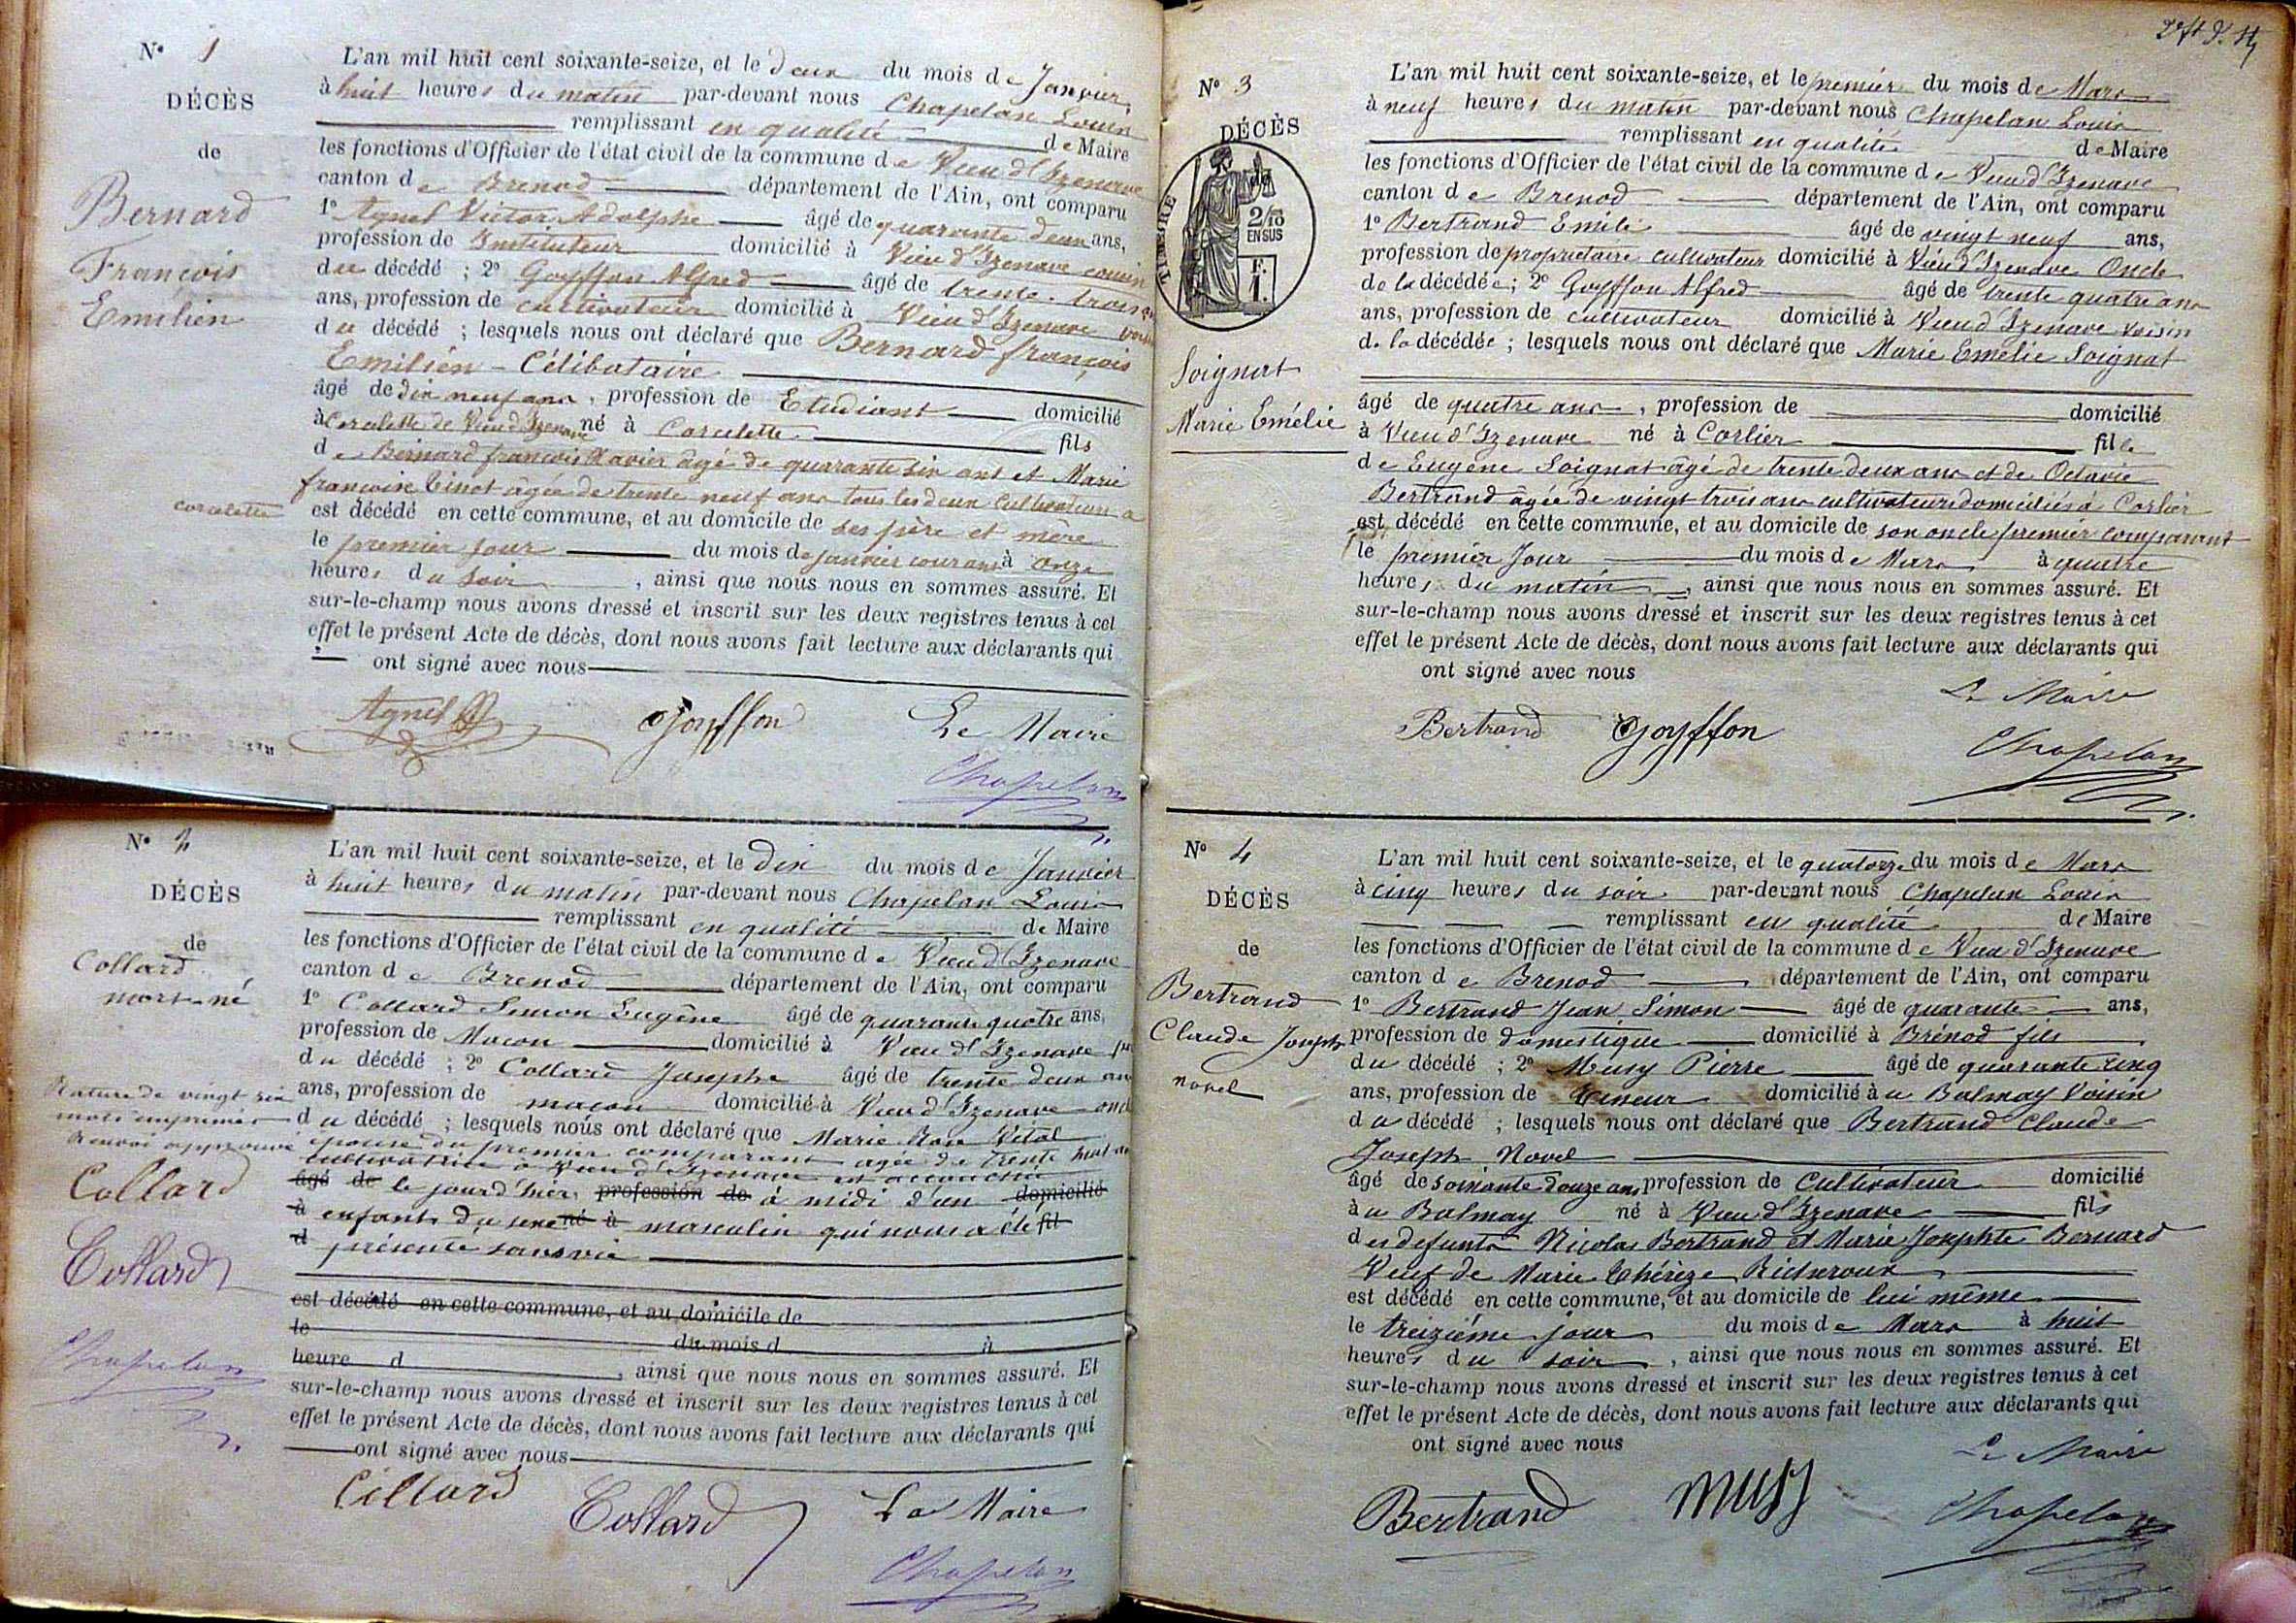 N° 1
DÉCÈS
de
Bernard
François
Emilien
L'an mil huit cent soixante-seize, et le deux du mois de Janvier
à huit heures du matin par-devant nous Chapelan Louis
remplissant en qualité de Maire
les fonctions d'Officier de l'état civil de la commune de Vieu d'Izenave
canton de Brenod département de l'Ain, ont comparu
1° Agnel Victor Adolphe âgé de quarante deux ans,
profession de Instituteur domicilié à Vieu d'Izenave cousin
du décédé ; 2° Goyffon Alfred âgé de trente trois
ans, profession de cultivateur domicilié à Vieu d'Izenave
du décédé ; lesquels nous ont déclaré que Bernard françois
Emilien - Célibataire
âgé de dix neuf ans, profession de Etudiant domicilié
à Corcelette de Vieu d'Izenave né à Corcelette fils
de Bernard françois Xavier âgé de quarante six ans et Marie
françoise Tinot âgée de trente neuf ans tous les deux cultivateurs à
corcelette
est décédé en cette commune, et au domicile de ses père et mère
le premier jour du mois de janvier courant à onze
heures du soir, ainsi que nous nous en sommes assuré. Et
sur-le-champ nous avons dressé et inscrit sur les deux registres tenus à cet
effet le présent Acte de décès, dont nous avons fait lecture aux déclarants qui
ont signé avec nous
Agnel Goyffon Le Maire
Chapelan
N° 2
DÉCÈS
de
Collard
mort-né
L'an mil huit cent soixante-seize, et le Dix du mois de Janvier
à huit heures du matin par-devant nous Chapelan Louis
remplissant en qualité de Maire
les fonctions d'Officier de l'état civil de la commune de Vieu d'Izenave
canton de Brenod département de l'Ain, ont comparu
1° Collard Simon Eugène âgé de quarante quatre ans,
profession de Maçon domicilié à Vieu d'Izenave
du décédé ; 2° Collard Josephe âgé de trente deux ans
ans, profession de maçon domicilié à Vieu d'Izenave
du décédé ; lesquels nous ont déclaré que Marie Vital
épouse du premier comparant agée de trente huit
cultivatrice à Vieu d'Izenave est accouchée
âgé de le jourd'hier, profession de à midi d'un domicilié
à enfant du sexe né à masculin qui nous a été fil
d présenté sans vie
est décédé en cette commune, et au domicile de
le du mois d à
heure d , ainsi que nous nous en sommes assuré. Et
sur-le-champ nous avons dressé et inscrit sur les deux registres tenus à cet
effet le présent Acte de décès, dont nous avons fait lecture aux déclarants qui
ont signé avec nous
Rature de vingt six
mots imprimés
renvoi approuvé
Collard
Collard
Chapelan
Collard Collard Le Maire
Chapelan
N° 3
DÉCÈS
TIMBRE
2/10
EN SUS
F.
1.
Soignat
Marie Emélie
L'an mil huit cent soixante-seize, et le premier du mois de Mars
à neuf heures du matin par-devant nous Chapelan Louis
remplissant en qualité de Maire
les fonctions d'Officier de l'état civil de la commune de Vieu d'Izenave
canton de Brenod département de l'Ain, ont comparu
1° Bertrand Emile âgé de vingt neuf ans,
profession de propriétaire cultivateur domicilié à Vieu d'Izenave Oncle
de la décédée ; 2° Goyffon Alfred âgé de trente quatre ans
ans, profession de cultivateur domicilié à Vieu d'Izenave voisin
de la décédée ; lesquels nous ont déclaré que Marie Emélie Soignat
âgé de quatre ans, profession de domicilié
à Vieu d'Izenave né à Corlier fille
de Eugène Soignat âgé de trente deux ans et de Octavie
Bertrand âgée de vingt trois ans cultivateurs domiciliés à Corlier
est décédé en cette commune, et au domicile de son oncle premier comparant
le premier Jour du mois de Mars à quatre
heures du matin, ainsi que nous nous en sommes assuré. Et
sur-le-champ nous avons dressé et inscrit sur les deux registres tenus à cet
effet le présent Acte de décès, dont nous avons fait lecture aux déclarants qui
ont signé avec nous
Le Maire
Bertrand Goyffon
Chapelan
N° 4
DÉCÈS
de
Bertrand
Claude Joseph
novel
L'an mil huit cent soixante-seize, et le quatorze du mois de Mars
à cinq heures du soir par-devant nous Chapelan Louis
remplissant en qualité de Maire
les fonctions d'Officier de l'état civil de la commune de Vieu d'Izenave
canton de Brenod département de l'Ain, ont comparu
1° Bertrand Jean Simon âgé de quarante ans,
profession de domestique domicilié à Brénod fils
du décédé ; 2° Musy Pierre âgé de quarante cinq
ans, profession de domicilié à u Balmay Voisin
du décédé ; lesquels nous ont déclaré que Bertrand Claude
Joseph Novel
âgé de soixante douze ans, profession de Cultivateur domicilié
à u Balmay né à Vieu d'Izenave fils
des defunts Nicolas Bertrand et Marie Josephte Bernard
Veuf de Marie Thérèze Richeroux
est décédé en cette commune, et au domicile de lui même
le treizième jour du mois de Mars à huit
heures du soir, ainsi que nous nous en sommes assuré. Et
sur-le-champ nous avons dressé et inscrit sur les deux registres tenus à cet
effet le présent Acte de décès, dont nous avons fait lecture aux déclarants qui
ont signé avec nous
Le Maire
Bertrand Musy
Chapelan